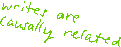 writes are
causally related